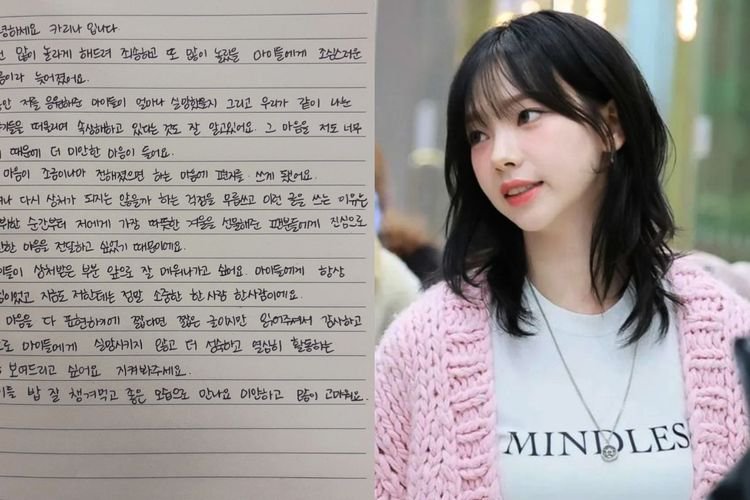 하세요 카리나 입니다
많이 놀라게 해드려 죄송하고 또 많이 놀랐을 마이들에게 조심스러운
음이라 늦어졌어요.
안 저를 응원해준 마이들이 얼마나 실망했을지 그리고 우리가 같이 나눈
기들을 떠올리며 속상해하고 있다는 것도 잘 알고있어요. 그 마음을 저도 너무
때문에 더 미안한 마음이 들어요.
마음이 조금이나마 전해졌으면 하는 마음에 편지를 쓰게 됐어요.
나 다시 상처가 되지는 않을까 하는 걱정을 무릅쓰고 이런 글을 쓰는 이유는
뷔한 순간부터 저에게 가장 따뜻한 겨울을 선물해준 팬분들에게 진심으로
안한 마음을 전달하고 싶었기 때문이에요.
이들이 상처받은 부분 앞으로 잘 메워나가고 싶어요. 마이들에게 항상
심이었고 지금도 저한테는 정말 소중한 한 사람 한사람이에요.
마음을 다 표현하기에 짧다면 짧은 글이지만 읽어주셔서 감사하고
으로 마이들에게 실망시키지 않고 더 성숙하고 열심히 활동하는
보여드리고 싶어요 지켜봐주세요.
이들 밥 잘 챙겨먹고 좋은 모습으로 만나요 미안하고 많이 고마워요.
MINDLES